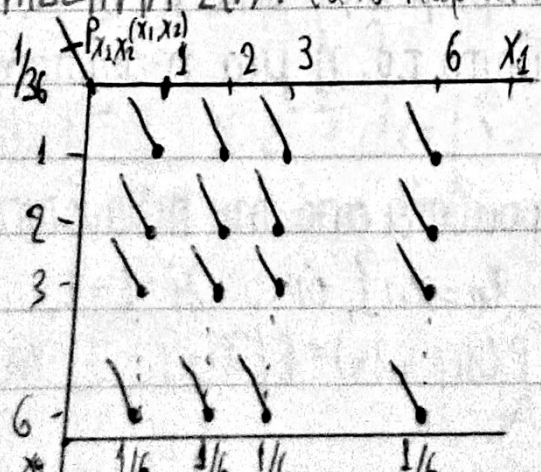 P_{X_1X_2}(x_1,x_2)
1/36
1 2 3 6 X_1
1
2
3
6
1/6 1/6 1/6 1/6